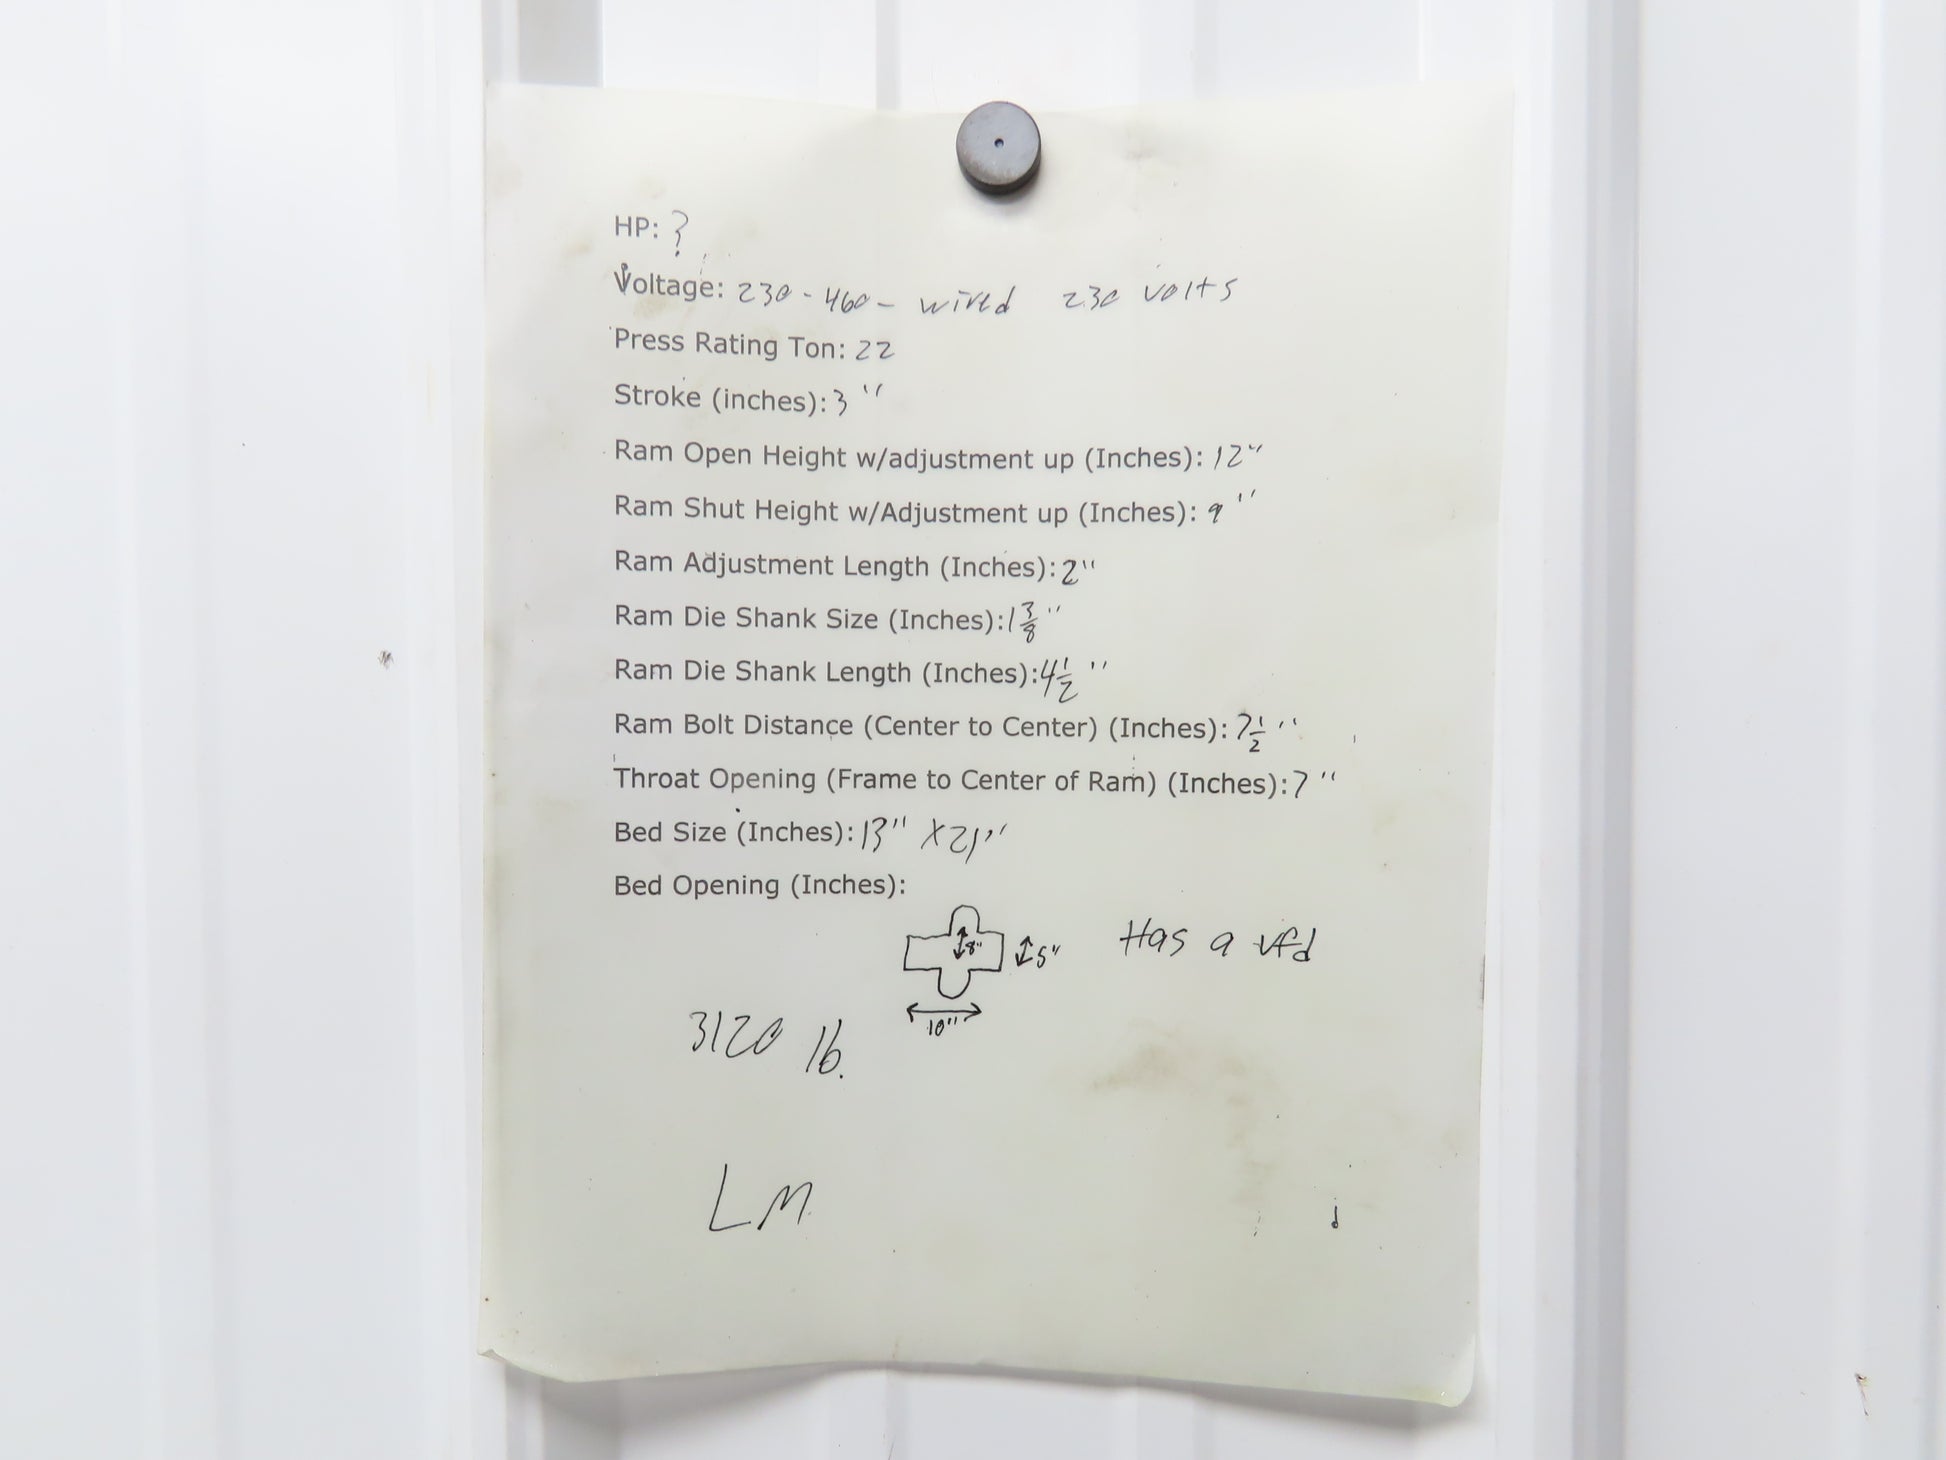 HP: ?
Voltage: 230 - 460 - wired 230 volts
Press Rating Ton: 22
Stroke (inches): 3"
Ram Open Height w/adjustment up (Inches): 12"
Ram Shut Height w/Adjustment up (Inches): 9"
Ram Adjustment Length (Inches): 2"
Ram Die Shank Size (Inches): 1 3/8"
Ram Die Shank Length (Inches): 4 1/2"
Ram Bolt Distance (Center to Center) (Inches): 7 1/2"
Throat Opening (Frame to Center of Ram) (Inches): 7"
Bed Size (Inches): 13" x 21"
Bed Opening (Inches):
8" 5" Has a vfd
10"
3120 lb.
LM